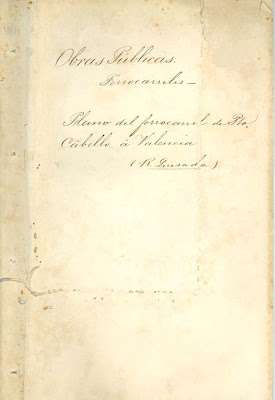 Obras Públicas.
Ferrocarriles—
Plano del ferrocarril de Pto.
Cabello á Valencia
(R. Quesada)